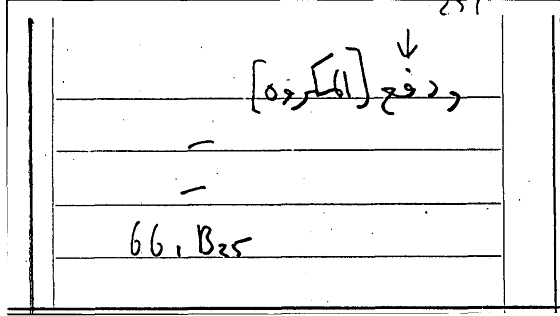 251
↓
ودفع [المكروه]
–
–
66, B25